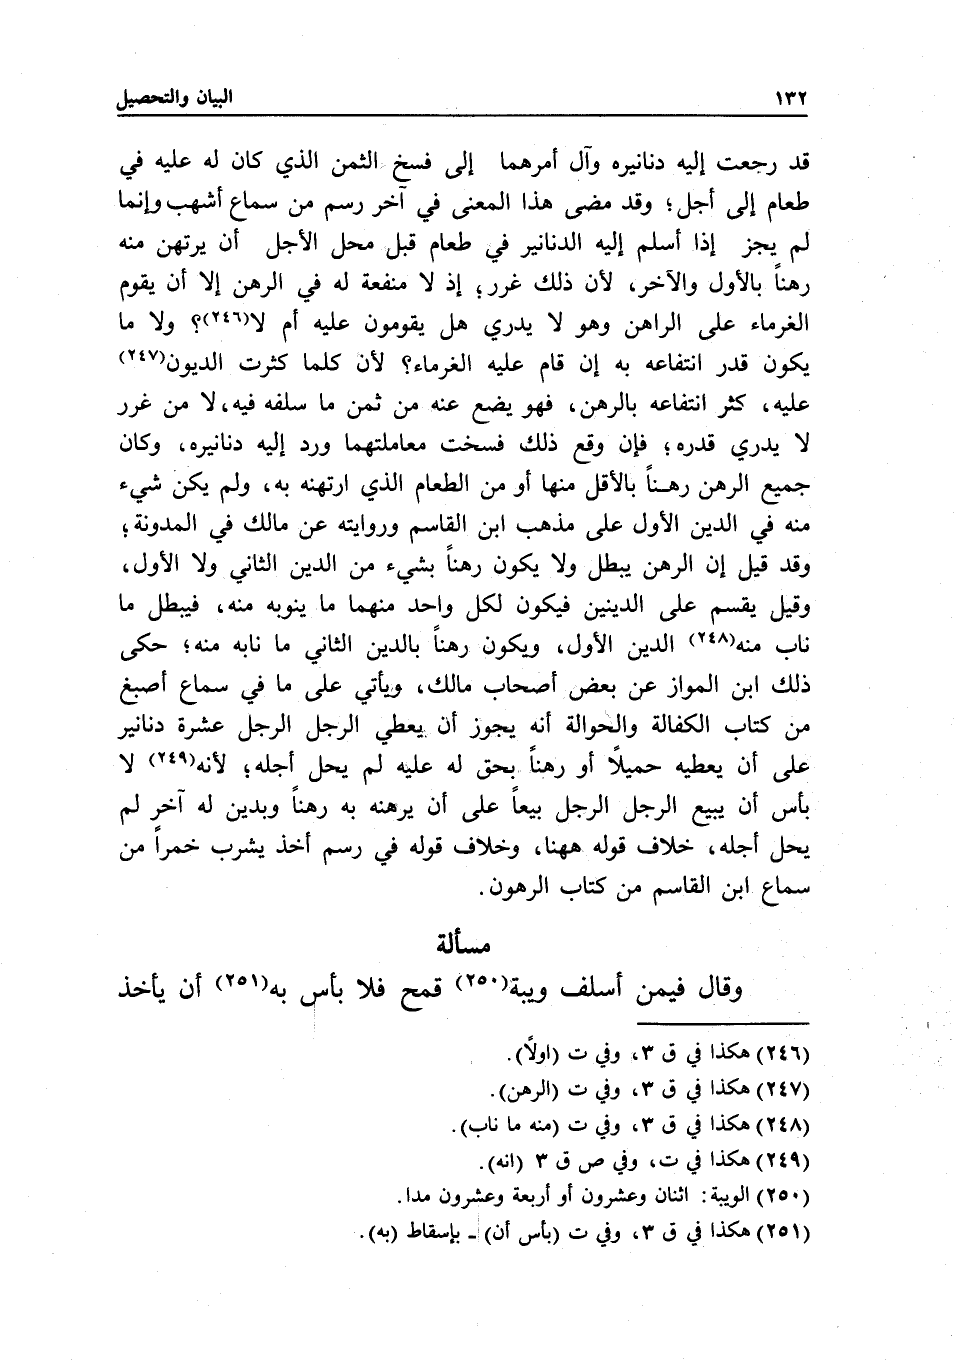 ١٣٢ البيان والتحصيل
قد رجعت إليه دنانيره وآل أمرهما إلى فسخ الثمن الذي كان له عليه في
طعام إلى أجل؛ وقد مضى هذا المعنى في آخر رسم من سماع أشهب وإنما
لم يجز إذا أسلم إليه الدنانير في طعام قبل محل الأجل أن يرتهن منه
رهناً بالأول والآخر، لأن ذلك غرر؛ إذ لا منفعة له في الرهن إلا أن يقوم
الغرماء على الراهن وهو لا يدري هل يقومون عليه أم لا(٢٤٦)؟ ولا ما
يكون قدر انتفاعه به إن قام عليه الغرماء؟ لأن كلما كثرت الديون(٢٤٧)
عليه، كثر انتفاعه بالرهن، فهو يضع عنه من ثمن ما سلفه فيه، لا من غرر
لا يدري قدره؛ فإن وقع ذلك فسخت معاملتهما ورد إليه دنانيره، وكان
جميع الرهن رهناً بالأقل منها أو من الطعام الذي ارتهنه به، ولم يكن شيء
منه في الدين الأول على مذهب ابن القاسم وروايته عن مالك في المدونة؛
وقد قيل إن الرهن يبطل ولا يكون رهناً بشيء من الدين الثاني ولا الأول،
وقيل يقسم على الدينين فيكون لكل واحد منهما ما ينوبه منه، فيبطل ما
ناب منه(٢٤٨) الدين الأول، ويكون رهناً بالدين الثاني ما نابه منه؛ حكى
ذلك ابن المواز عن بعض أصحاب مالك، ويأتي على ما في سماع أصبغ
من كتاب الكفالة والحوالة أنه يجوز أن يعطي الرجل الرجل عشرة دنانير
على أن يعطيه حميلاً أو رهناً بحق له عليه لم يحل أجله؛ لأنه(٢٤٩) لا
بأس أن يبيع الرجل الرجل بيعاً على أن يرهنه به رهناً وبدين له آخر لم
يحل أجله، خلاف قوله ههنا، وخلاف قوله في رسم أخذ يشرب خمراً من
سماع ابن القاسم من كتاب الرهون.
مسألة
وقال فيمن أسلف ويبة(٢٥٠) قمح فلا بأس به(٢٥١) أن يأخذ
(٢٤٦) هكذا في ق ٣، وفي ت (اولاً).
(٢٤٧) هكذا في ق ٣، وفي ت (الرهن).
(٢٤٨) هكذا في ق ٣، وفي ت (منه ما ناب).
(٢٤٩) هكذا في ت، وفي ص ق ٣ (انه).
(٢٥٠) الويبة: اثنان وعشرون أو أربعة وعشرون مدا.
(٢٥١) هكذا في ق ٣، وفي ت (بأس أن) ـ بإسقاط (به).